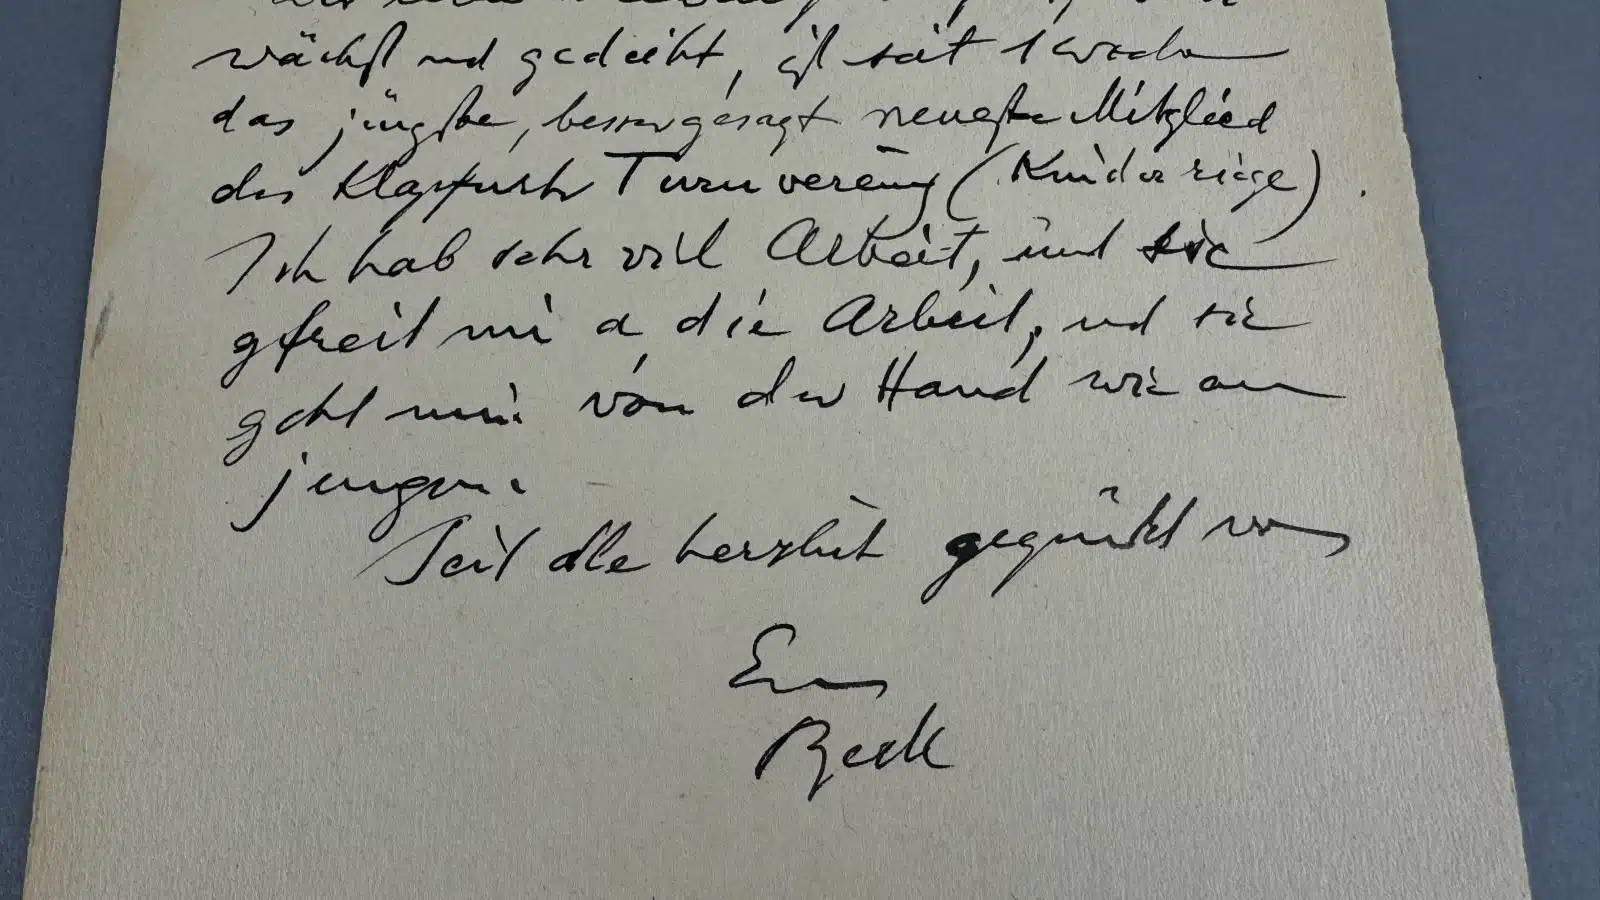 wächst und gedeiht, ist seit 1 Woche
das jüngste, besser gesagt neueste Mitglied
des Turnverein (Kinderriege).
Ich hab sehr viel Arbeit, und sie
gfreit mi a die Arbeit, und sie
geht mir von der Hand wie an
jungen.
Seit alle herzlich gegrüßt von
Beck